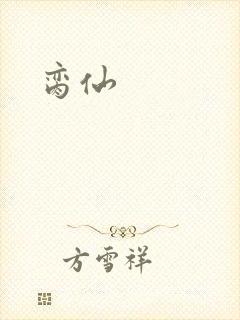 脔仙
方雪祥